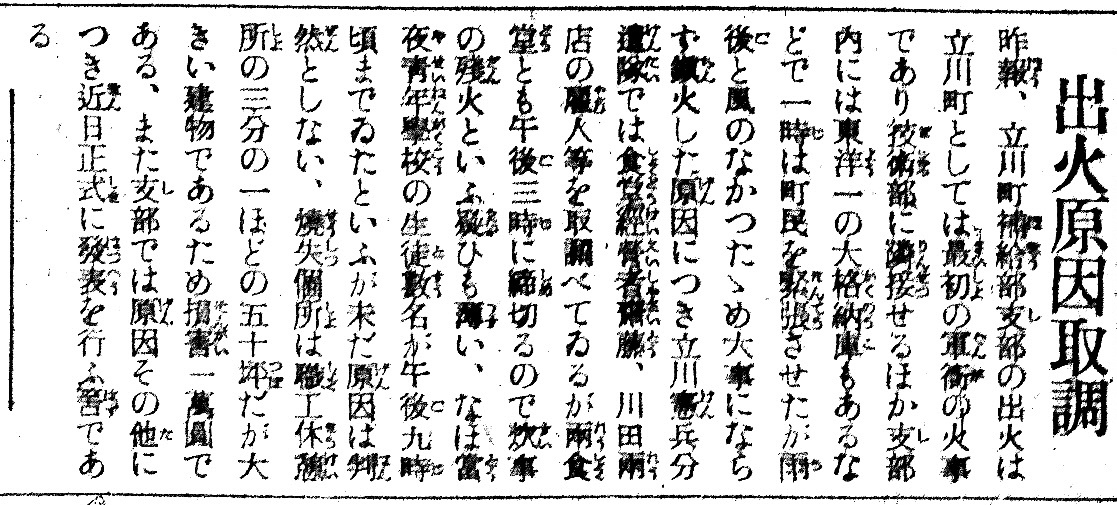 出火原因取調
昨報、立川町補給部支部の出火は
立川町としては最初の軍衙の火事
であり技術部に隣接せるほか支部
内には東洋一の大格納庫もあるな
どで一時は町民を緊張させたが雨
後と風のなかつたゝめ大事になら
ず鎮火した原因につき立川憲兵分
遣隊では食堂経営者齋藤、川田両
店の雇人等を取調べてゐるが両食
堂とも午後三時に締切るので炊事
の残火といふ疑ひも薄い、なほ当
夜青年學校の生徒數名が午後九時
頃までゐたといふが未だ原因は判
然としない、燒失個所は職工休憩
所の三分の一ほどの五十坪だが大
きい建物であるため損害一萬圓で
ある、また支部では原因その他に
つき近日正式に發表を行ふ筈であ
る